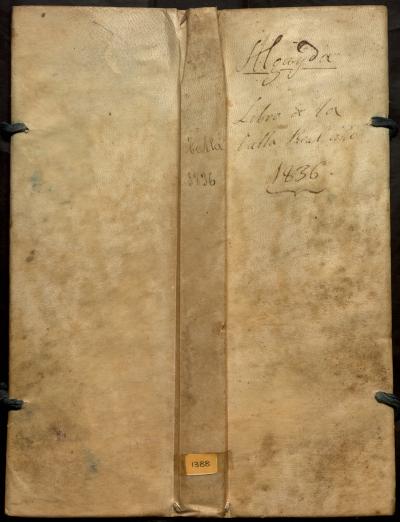 Talla
1836
1388
Algayda
Libro de la
talla Real año
1836